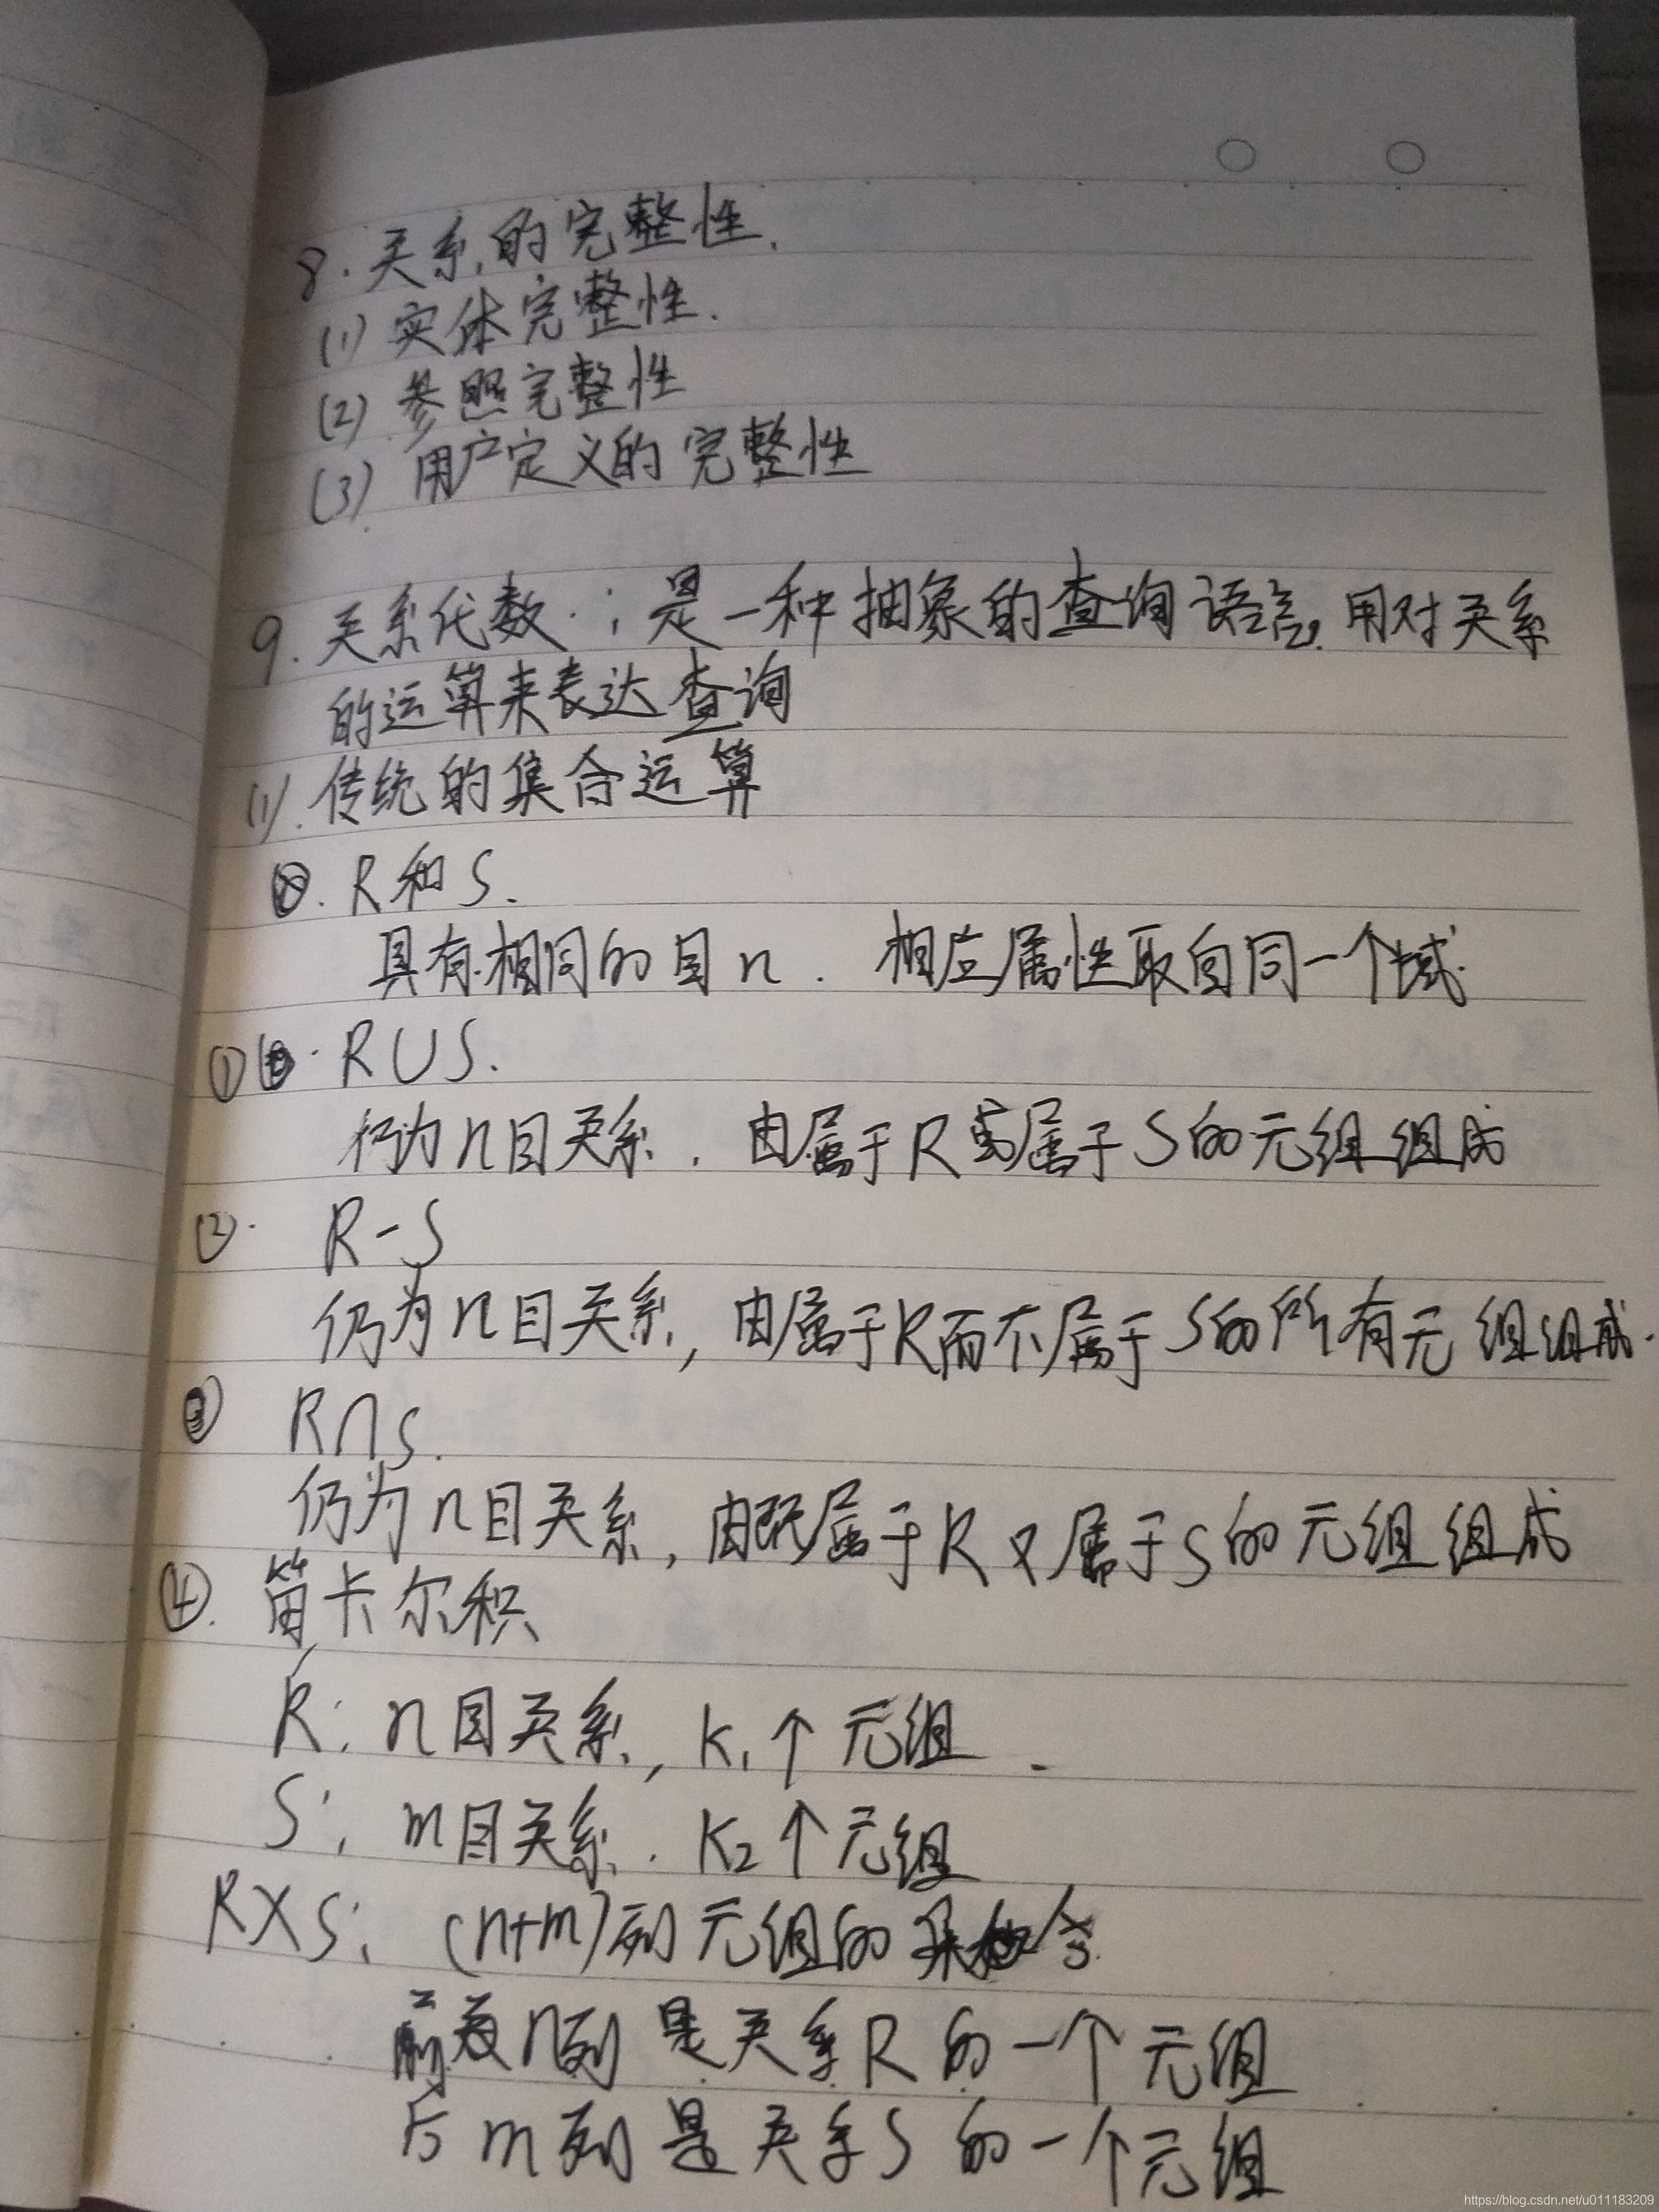 8. 关系的完整性.
(1) 实体完整性.
(2) 参照完整性
(3) 用户定义的完整性
9. 关系代数: 是一种抽象的查询语言, 用对关系
的运算来表达查询
(1). 传统的集合运算
R和S.
具有相同的目n. 相应属性取自同一个域.
① R∪S.
仍为n目关系. 由属于R或属于S的元组组成
②. R-S
仍为n目关系, 由属于R而不属于S的所有元组组成.
③ R∩S.
仍为n目关系, 由既属于R又属于S的元组组成
④. 笛卡尔积
R: n目关系, K₁个元组.
S: m目关系. K₂个元组
R×S: (n+m)列元组的集合
前n列是关系R的一个元组
后m列是关系S的一个元组
https://blog.csdn.net/u011183209